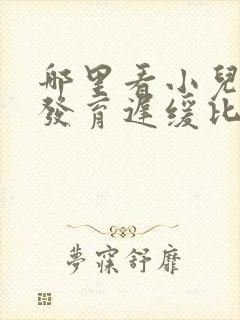 哪里看小兒
發育遲緩比
夢寐舒靡